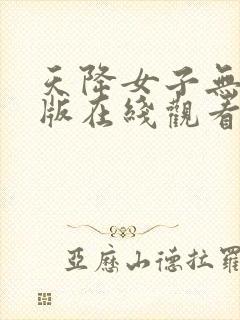 天降女子無
版在綫觀看
亞歷山德拉羅